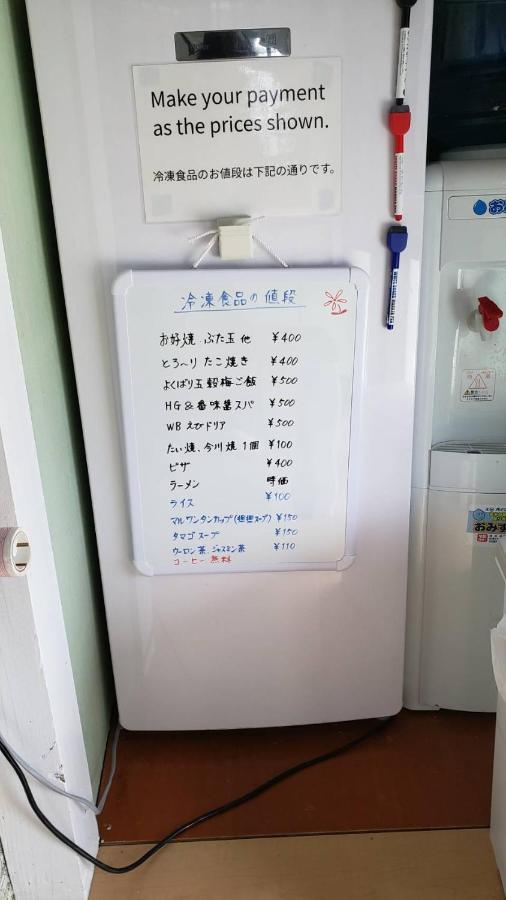 Make your payment
as the prices shown.
冷凍食品のお値段は下記の通りです。
冷凍食品の値段
お好焼 ぶた玉 他 ¥400
とろ〜り たこ焼き ¥400
よくばり五穀梅ご飯 ¥500
HG& 番味醤スパ ¥500
WB えびドリア ¥500
たい焼、今川焼 1個 ¥100
ピザ ¥400
ラーメン 時価
ライス ¥100
マルワンタンカップ(担担スープ) ¥150
タマゴスープ ¥150
ウーロン茶、ジャスミン茶 ¥110
コーヒー 無料